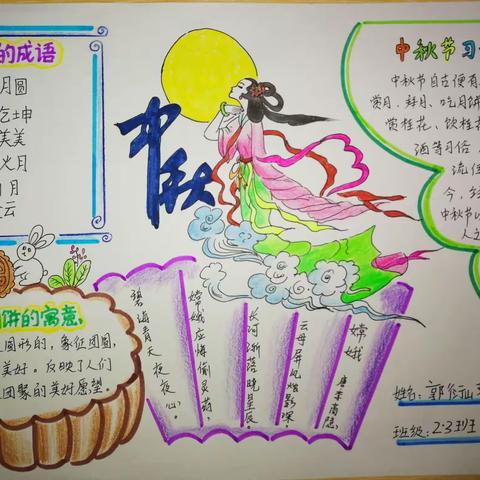 的成语
月圆
乾坤
美美
火月
月
云
中秋
中秋节习
中秋节自古便有
赏月、拜月、吃月饼
赏桂花、饮桂花
酒等习俗
流传
今,经
中秋节以
人之
饼的寓意
圆形的,象征团圆,
美好。反映了人们
团聚的美好愿望。
嫦娥
唐李商隐
云母屏风烛影深,
长河渐落晓星沉。
嫦娥应悔偷灵药
碧海青天夜夜心。
姓名:郭
班级:2.3班